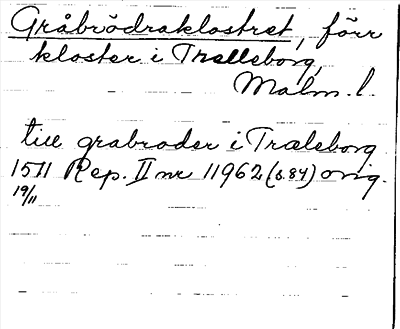 Gråbrödraklostret, förr
kloster i Trælleborg,
Malm. l.
till grabrøder i Træleborg
1511 Rep. II nr 11962 (s. 84) orig.
19/11